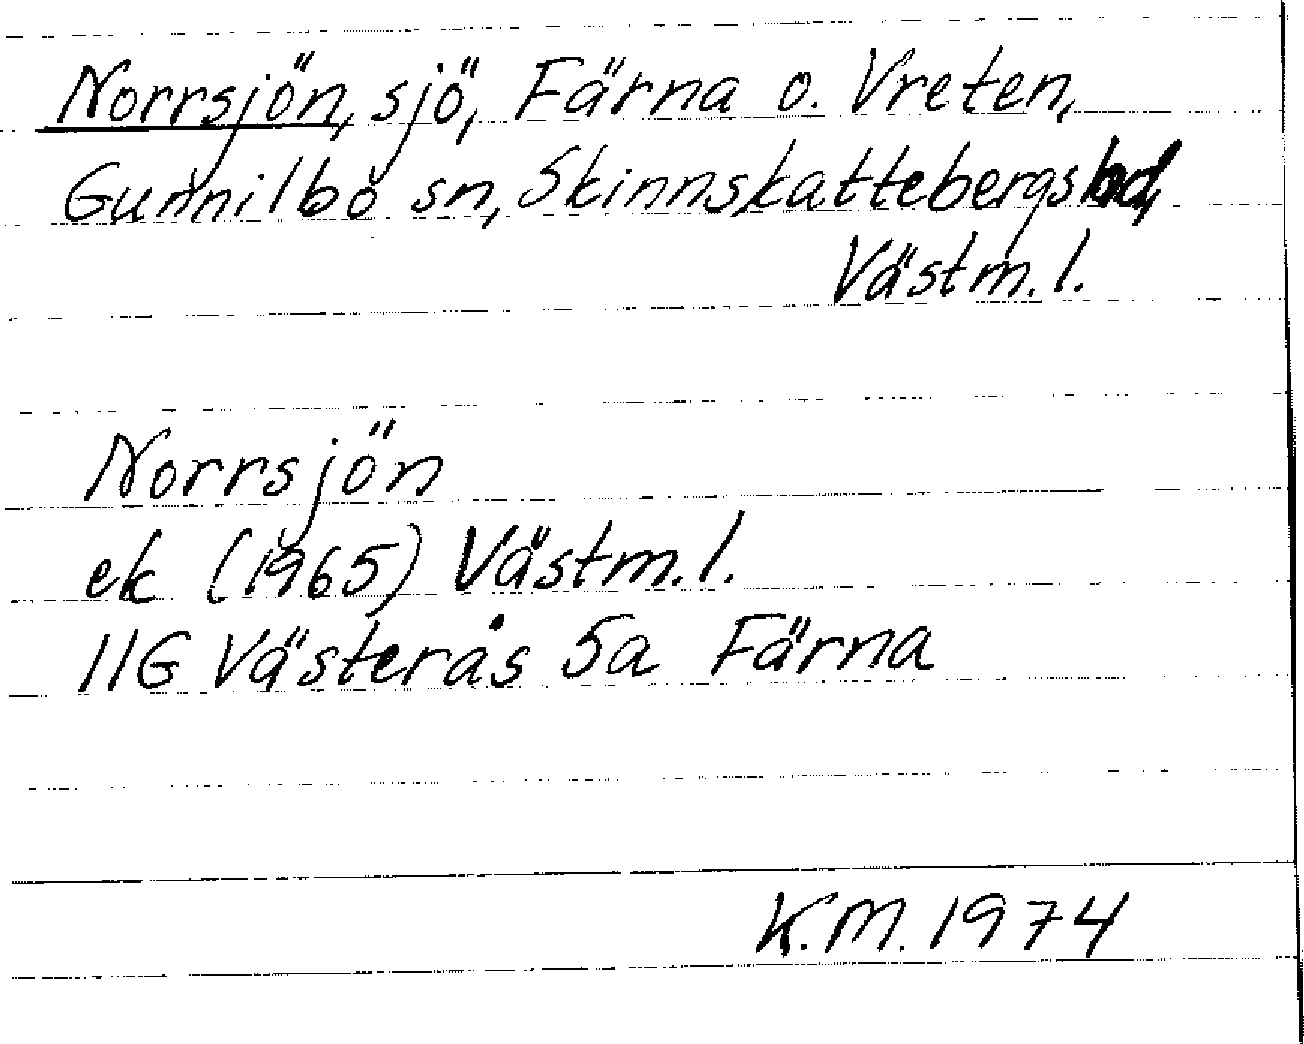 Norrsjön, sjö, Färna o. Vreten,
Gunnilbo sn, Skinnskattebergs bd,
Västm. l.
Norrsjön
ek (1965) Västm. l.
11G Västerås 5a Färna
K.M. 1974